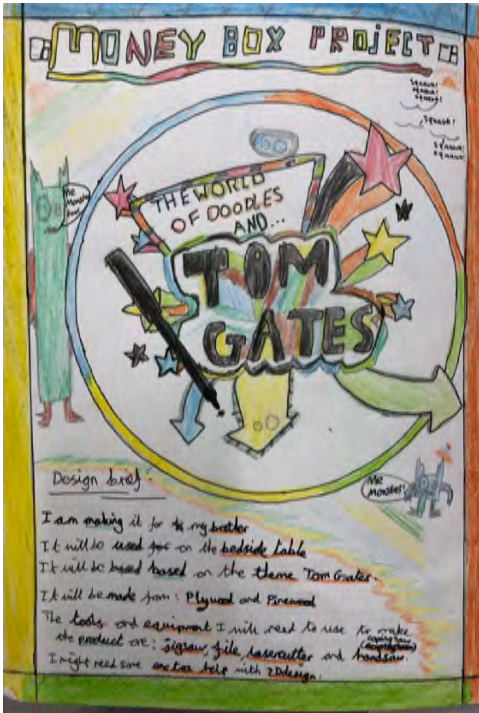 MONEY BOX PROJECT
squawk!
squawk!
squawk!
Squawk!
squawk!
squawk!
Me
Monster
THE WORLD
OF DOODLES
AND...
TOM
GATES
ME
MONSTER!
Design brief
I am making it for my brother
It will be used on the bedside table
It will be based on the theme Tom Gates.
It will be made from: Plywood and Pinewood
The tools and equipment I will need to use to make
the product are: jigsaw, file, lasercutter and coping saw handsaw.
I might need some extra help with 2Ddesign.